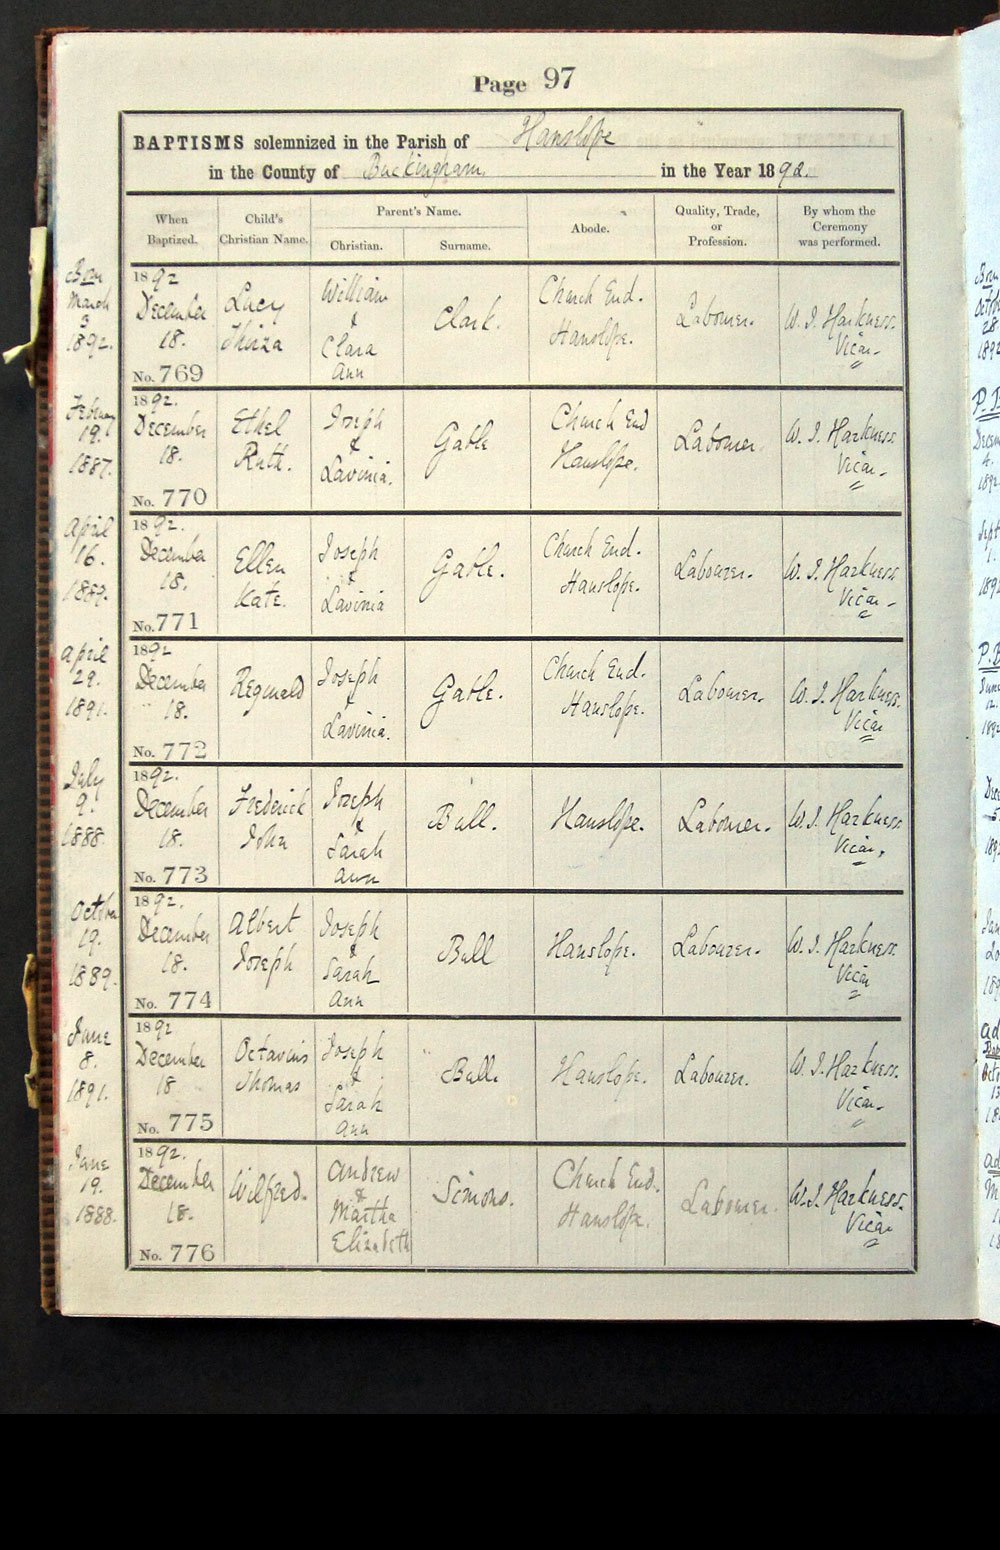 Page 97
BAPTISMS solemnized in the Parish of Hanslope
in the County of Buckingham. in the Year 1892.
When Baptized. Child's Christian Name. Parent's Name. Christian. Surname. Abode. Quality, Trade, or Profession. By whom the Ceremony was performed.
Born
March
3
1892.
1892
December
18.
No. 769
Lucy
Thirza
William
&
Clara
Ann
Clark.
Church End.
Hanslope.
Labourer.
W. J. Harkness.
Vicar.
February
19.
1887.
1892.
December
18.
No. 770
Ethel
Ruth.
Joseph
&
Lavinia.
Gable
Church End
Hanslope.
Labourer.
W. J. Harkness.
Vicar.
April
16.
1889.
1892.
December
18.
No. 771
Ellen
Kate.
Joseph
&
Lavinia
Gable.
Church End.
Hanslope.
Labourer.
W. J. Harkness.
Vicar.
April
29.
1891.
1892
December
18.
No. 772
Reginald
Joseph
&
Lavinia.
Gable.
Church End.
Hanslope.
Labourer.
W. J. Harkness.
Vicar
July
9.
1888.
1892.
December
18.
No. 773
Frederick
John
Joseph
&
Sarah
Ann
Bull.
Hanslope.
Labourer.
W. J. Harkness.
Vicar.
October
19.
1889.
1892.
December
18.
No. 774
Albert
Joseph
Joseph
&
Sarah
Ann
Bull
Hanslope.
Labourer.
W. J. Harkness.
Vicar
June
8.
1891.
1892
December
18
No. 775
Octavius
Thomas
Joseph
&
Sarah
Ann
Bull.
Hanslope.
Labourer.
W. J. Harkness.
Vicar.
June
19.
1888.
1892.
December
18.
No. 776
Wilfred.
Andrew
&
Martha
Elizabeth
Simons.
Church End.
Hanslope.
Labourer.
W. J. Harkness.
Vicar